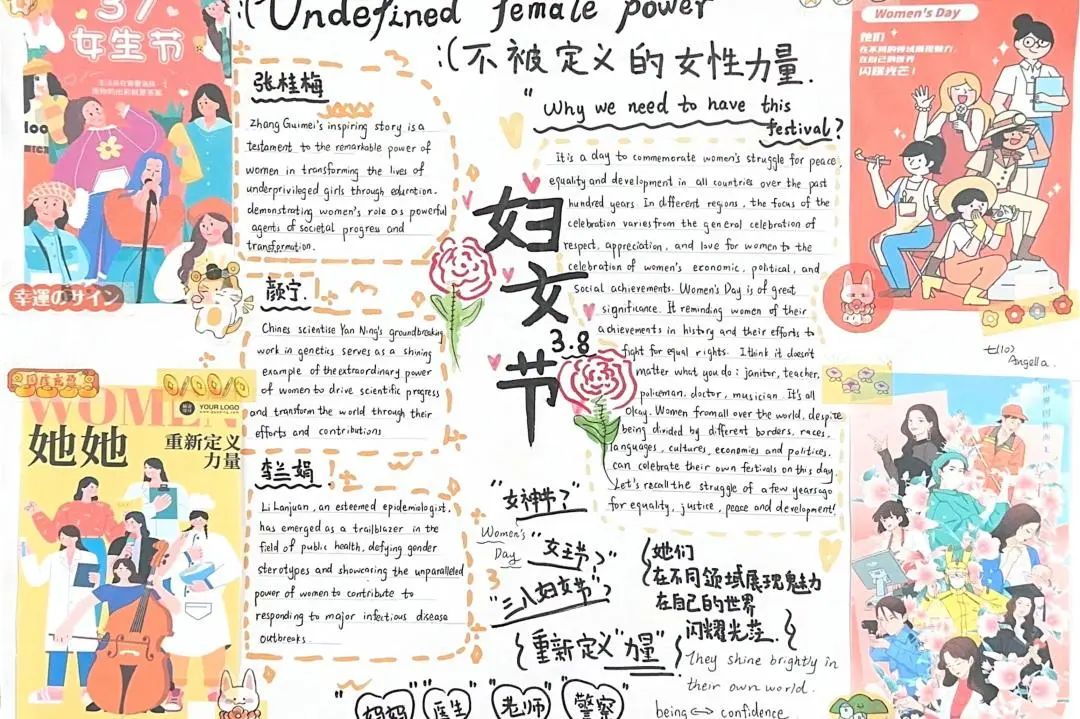 :(Undefined female power
:(不被定义的女性力量.
37
女生节
张桂梅
Zhang Guimei's inspiring story is a
testament to the remarkable power of
women in transforming the lives of
underprivileged girls through education.
demonstrating women's role as powerful
agents of societal progress and
transformation.
颜宁.
Chines scientise Yan Ning's groundbreaking
work in genetics serves as a shining
example of the extraordinary power
of women to drive scientific progress
and transform the world through their
efforts and contributions
李兰娟.
Li Lanjuan, an esteemed epidemiologist,
has emerged as a trailblazer in the
field of public health, defying gender
sterotypes and showcasing the unparalleled
power of women to contribute to
responding to major infectious disease
outbreaks.
"Why we need to have this
festival?
It is a day to commemorate women's struggle for peace,
equality and development in all countries over the past
hundred years. In different regions, the focus of the
celebration varies from the general celebration of
respect, appreciation, and love for women to the
celebration of women's economic, political, and
social achievements. Women's Day is of great
significance. It reminding women of their
achievements in history and their efforts to
fight for equal rights. I think it doesn't
matter what you do: janitor, teacher,
policeman, doctor, musician. It's all
okay. Women from all over the world, despite
being divided by different borders, races,
languages, cultures, economies and politices.
can celebrate their own festivals on this day.
Let's recall the struggle of a few years ago
for equality, justice, peace and development!
妇女节
3.8
"女神节?"
Women's
Day
"女王节?"
"三八妇女节"?
{重新定义"力量"}
{她们
在不同领域展现魅力
在自己的世界
闪耀光芒.}
They shine brightly in
their own world.
being⇔confidence
"妈妈"
"医生"
"老师"
"警察"
Women's Day
她们
在不同的领域展现魅力,
在自己的世界
闪耀光芒!
七(10)
Angella.
幸運のサイン
WOMEN
YOUR LOGO
她她
重新定义
力量